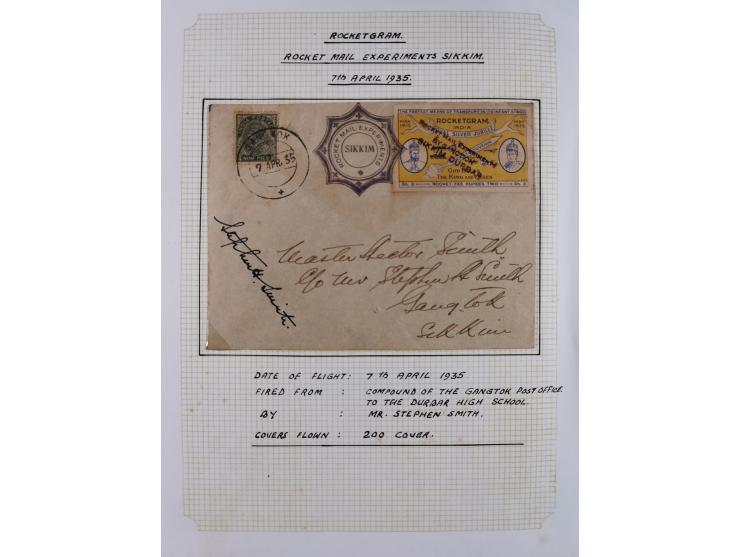 ROCKETGRAM.
ROCKET MAIL EXPERIMENTS SIKKIM.
7th APRIL 1935.
THE FASTEST MEANS OF TRANSPORT
ROCKETGRAM
INDIA
SILVER JUBILEE
ROCKET MAIL EXPERIMENTS
SIKKIM DURBAR
THE KING AND QUEEN
Rs. 2 ROCKET FEE RUPEES TWO Rs. 2
ROCKET MAIL EXPERIMENTS
SIKKIM
7 APR. 35
Stephen H. Smith.
Master Hector Smith
c/o Mr Stephen H Smith
Gangtok
Sikkim
DATE OF FLIGHT: 7th APRIL 1935
FIRED FROM : COMPOUND OF THE GANGTOK POST OFFICE.
TO THE DURBAR HIGH SCHOOL.
BY : MR. STEPHEN SMITH.
COVERS FLOWN : 200 COVER.